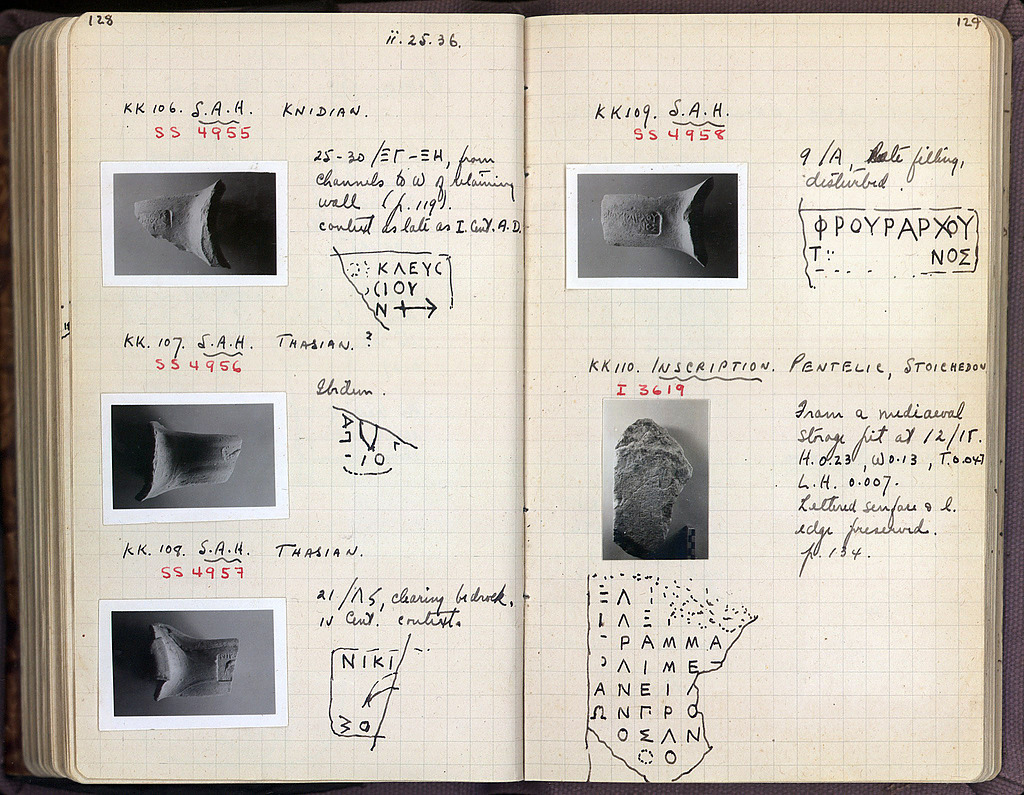 128
ii. 25. 36.
KK 106. S.A.H. KNIDIAN.
SS 4955
25-30/ΞΓ-ΞΗ, from
channels to W of retaining
wall (p. 119).
context as late as I. Cent. A.D.
ΚΛΕΥΣ
ΙΟΥ
Ν
KK. 107. S.A.H. THASIAN. ?
SS 4956
Ibidem.
ΙΟ
KK. 108. S.A.H. THASIAN.
SS 4957
21/ΛS, clearing bedrock.
IV Cent. context.
ΝΙΚΙ
129
KK109. S.A.H.
SS 4958
9/Α, late filling,
disturbed.
ΦΡΟΥΡΑΡΧΟΥ
Τ ΝΟΣ
KK110. INSCRIPTION. PENTELIC, STOICHEDON
I 3619
From a mediaeval
storage pit at 12/ΙΕ.
H. 0.23, W 0.13, T. 0.047
L.H. 0.007.
Lettered surface & l.
edge preserved.
p. 134.
Ξ Λ
Ι Λ Ε Ι
Ρ Α Μ Μ Α
Λ Ι Μ Ε
Α Ν Ε Ι
Ω Ν Γ Ρ Ο
Ο Σ Λ Ν
Ο Ο